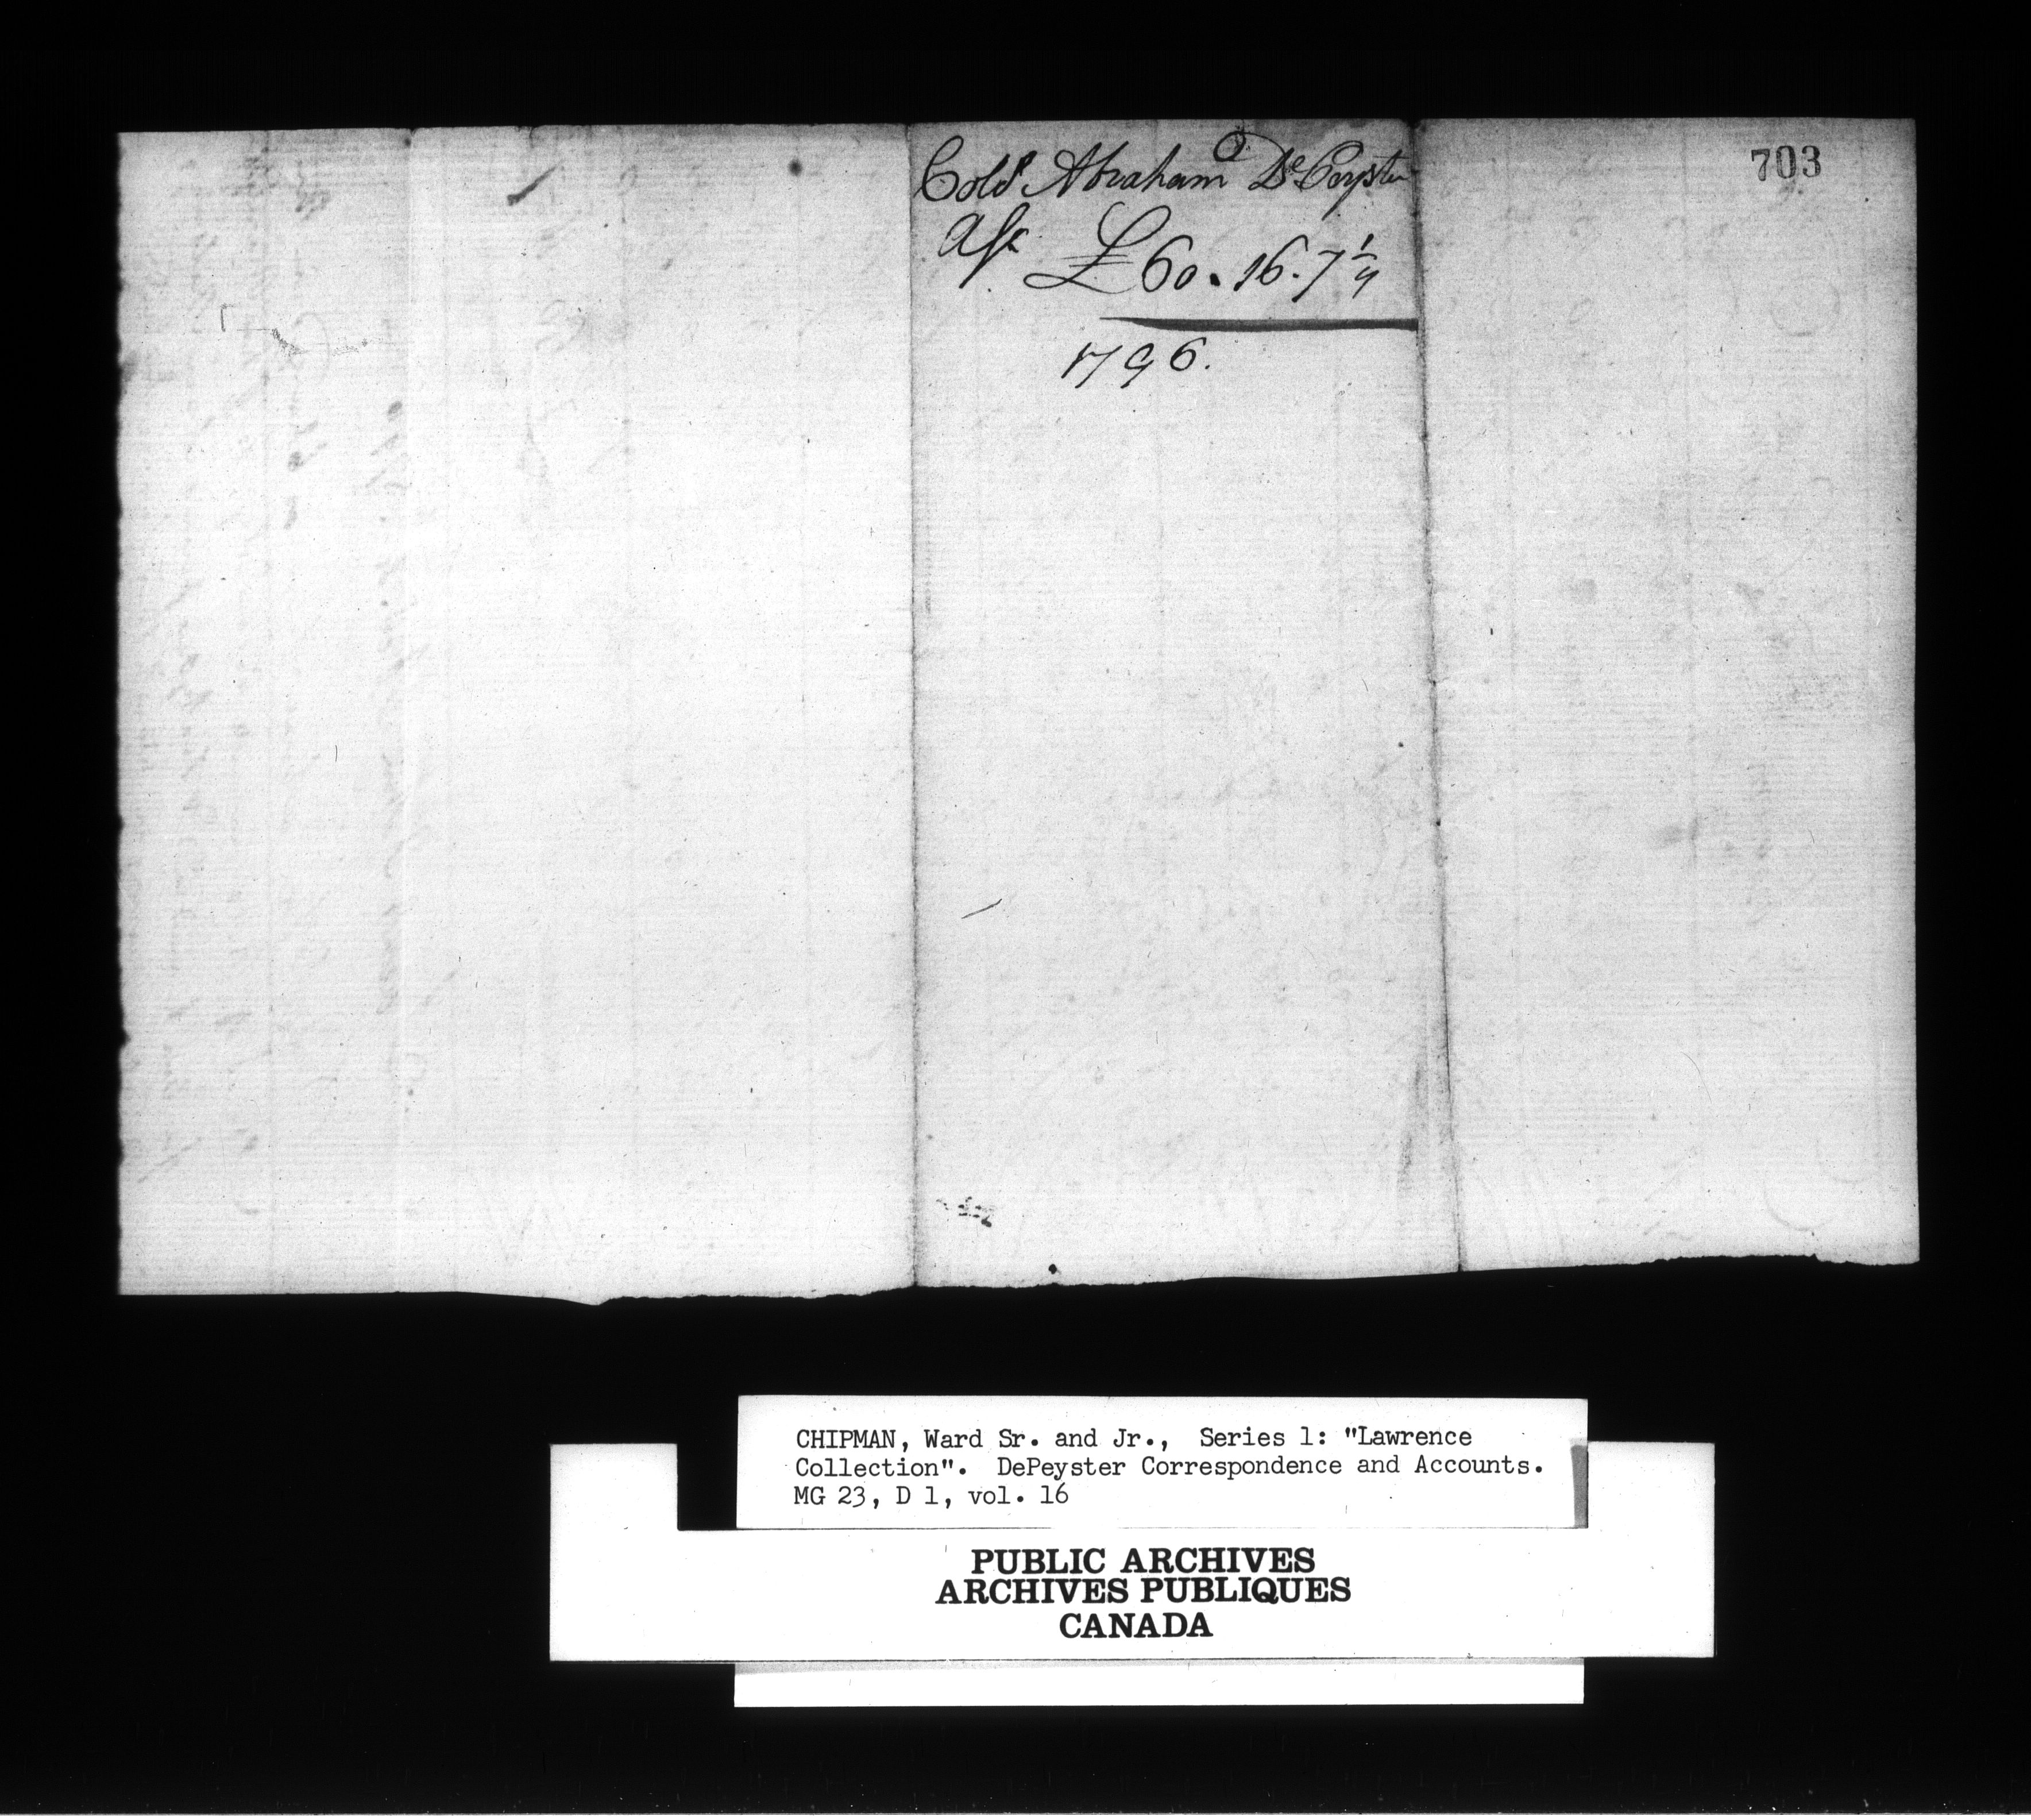 703
Col.º Abraham De Peyster
a/c £60.16.7¼
1796.
CHIPMAN, Ward Sr. and Jr., Series 1: "Lawrence
Collection". DePeyster Correspondence and Accounts.
MG 23, D 1, vol. 16
PUBLIC ARCHIVES
ARCHIVES PUBLIQUES
CANADA